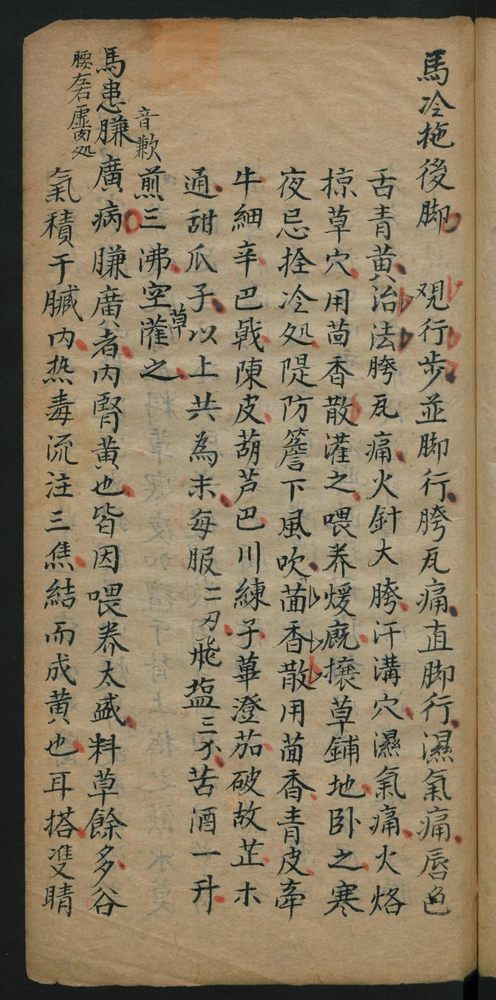 馬冷拖後脚　观行步並脚行胯瓦痛直脚行濕氣痛唇色
舌青黄治法胯瓦痛火針大胯汗溝穴濕氣痛火烙
掠草穴用茴香散灌之喂养煖廐攘草鋪地卧之寒
夜忌拴冷处隄防簷下風吹茴香散用茴香青皮牵
牛細辛巴戟陳皮葫芦巴川練子蓽澄茄破故芷木
通甜瓜子以上共為末每服二刃飛塩三分苦酒一升
煎三沸空草灌之
音歉
馬患膁廣病膁廣者内腎黄也皆因喂养太盛料草餘多谷
腰左右虚肉处
氣積于臟内热毒流注三焦結而成黄也耳搭双睛